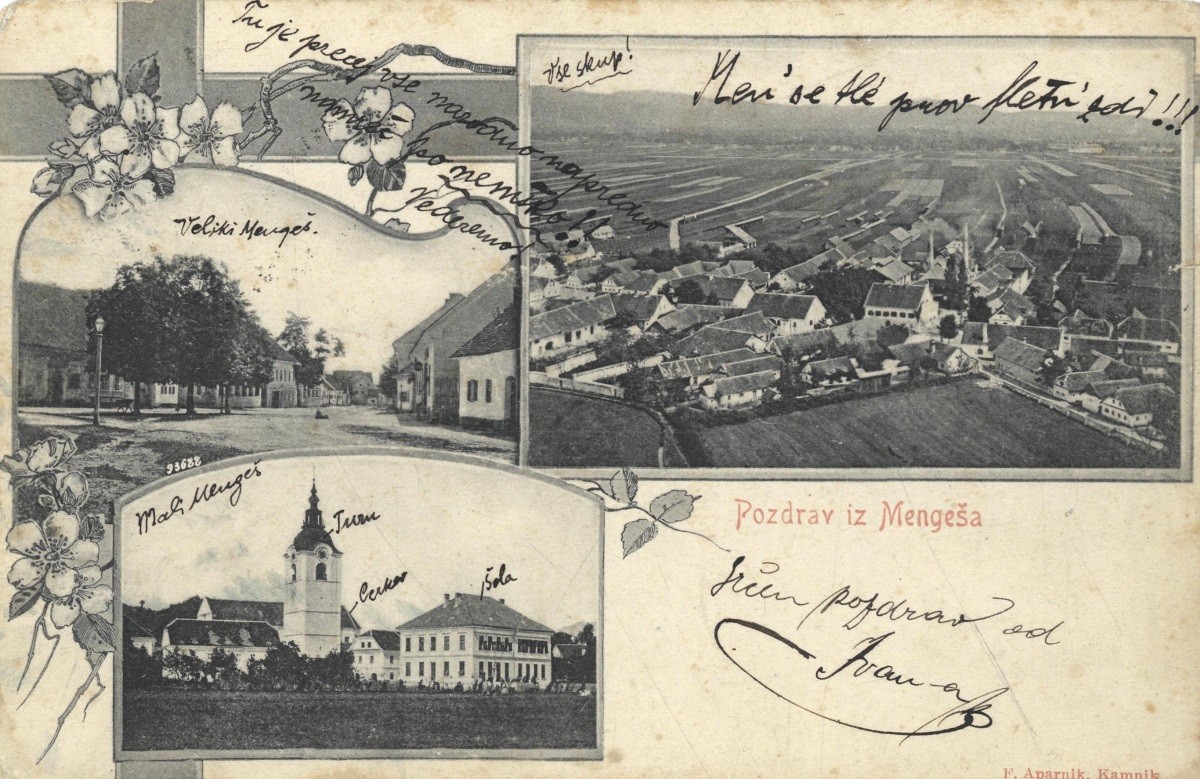 Tu je precej vse narodno napredno
namreč
nemško!!
Vederemo!
Vse skup!
Men' se
Veliki Mengeš.
93688
Mali Mengeš
Turn
Cerkev
Šola
Pozdrav iz Mengeša
Srčen pozdrav od
Ivan-a
F. Aparnik, Kamnik